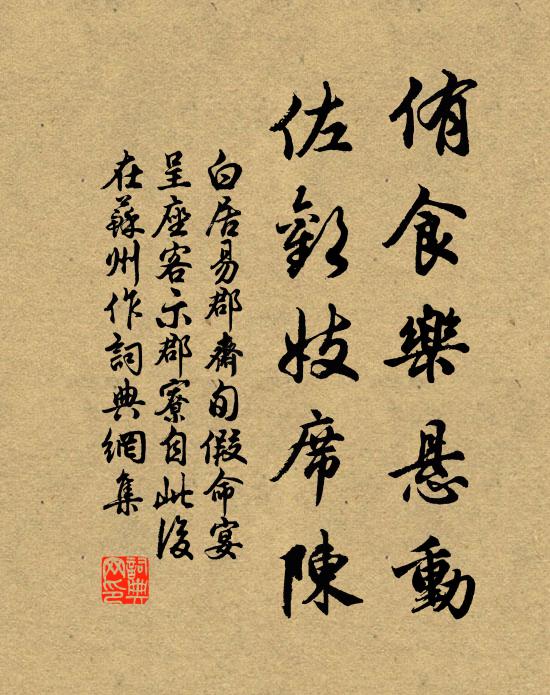 侑食樂悬動
佐歡妓席陳
白居易郡齋旬假命宴
呈座客示郡寮自此後
在蘇州作詞典網集
詞典网印